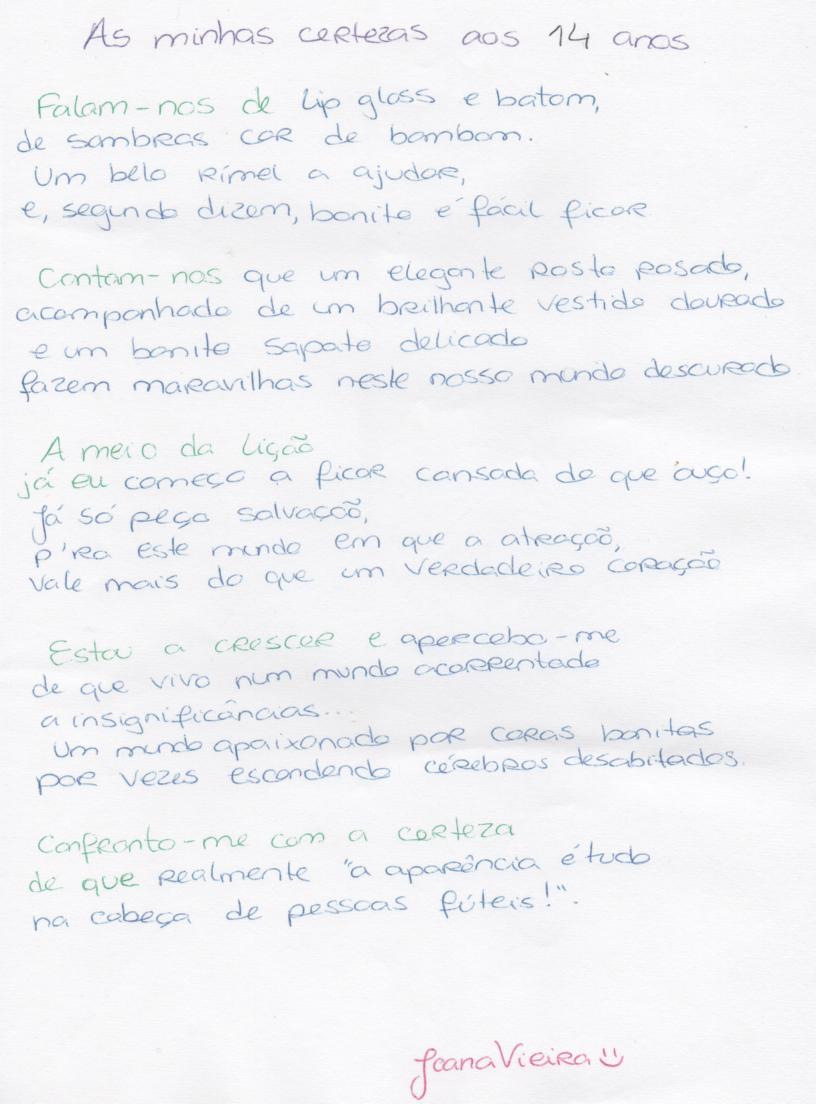 As minhas certezas aos 14 anos
Falam-nos de lip gloss e batom,
de sombras cor de bombom.
Um belo rímel a ajudar,
e, segundo dizem, bonito é fácil ficar
Contam-nos que um elegante rosto rosado,
acompanhado de um brilhante vestido dourado
e um bonito sapato delicado
fazem maravilhas neste nosso mundo descurado
A meio da lição
já eu começo a ficar cansada do que ouço!
Já só peço salvação,
p'ra este mundo em que a atração,
vale mais do que um verdadeiro coração
Estou a crescer e apercebo-me
de que vivo num mundo acorrentado
a insignificâncias...
Um mundo apaixonado por caras bonitas
por vezes escondendo cérebros desabitados.
Confronto-me com a certeza
de que realmente "a aparência é tudo
na cabeça de pessoas fúteis!".
Joana Vieira